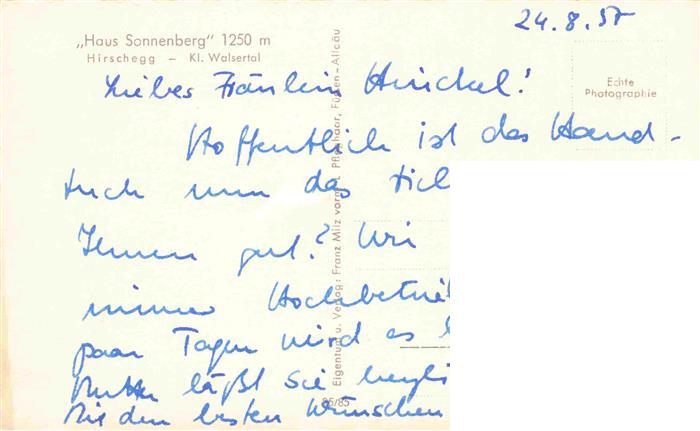 24.8.57
„Haus Sonnenberg" 1250 m
Hirschegg – Kl. Walsertal
Echte
Photographie
Liebes Fräulein Hinckel!
Hoffentlich ist das Hand-
tuch nun das
Ihnen gut? Wir
immer Hochbetrie
paar Tagen wird es
Mutter läßt sie herzli
Mit den besten Wünschen
Eigentum u. Verlag: Franz Milz vorm. Füssen-Allgäu
85/85